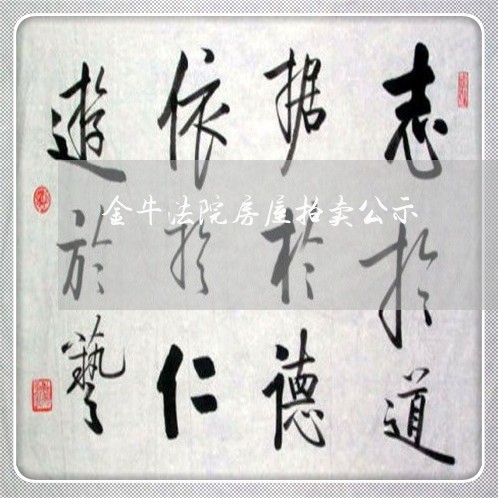 志於道
据於德
依於仁
遊於藝
金牛法院房屋拍卖公示